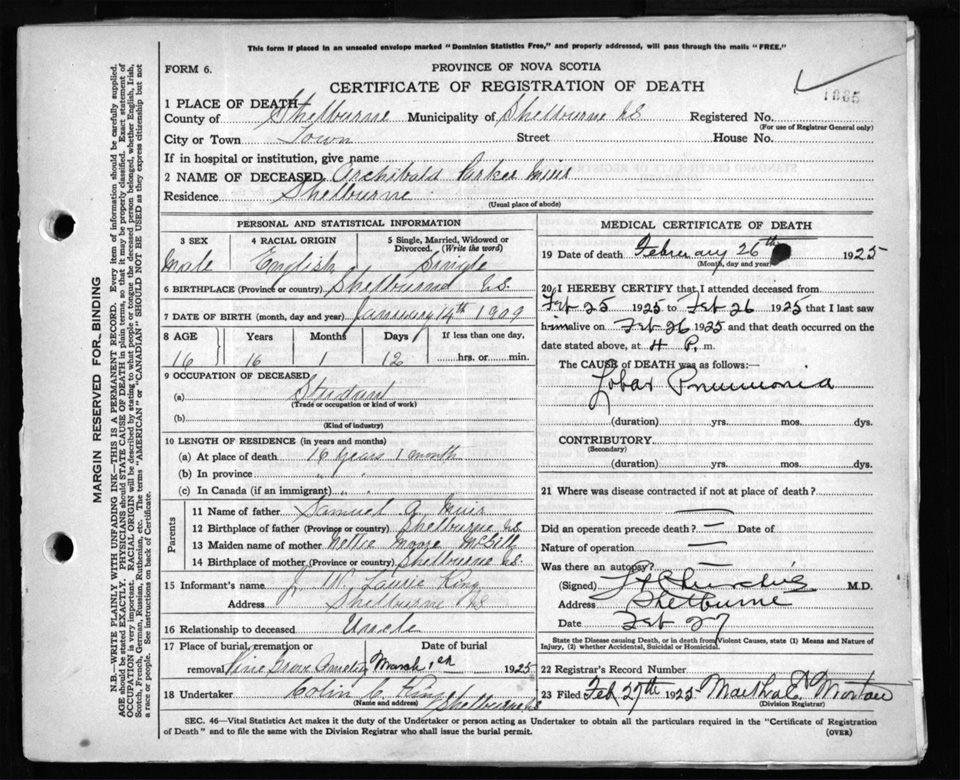 This form if placed in an unsealed envelope marked "Dominion Statistics Free," and properly addressed, will pass through the mails "FREE."
FORM 6.
PROVINCE OF NOVA SCOTIA
CERTIFICATE OF REGISTRATION OF DEATH
1865
MARGIN RESERVED FOR BINDING
N.B.—WRITE PLAINLY WITH UNFADING INK—THIS IS A PERMANENT RECORD. Every item of information should be carefully supplied.
AGE should be stated EXACTLY. PHYSICIANS should STATE CAUSE OF DEATH in plain terms, so that it may be properly classified. Exact statement of
OCCUPATION is very important. RACIAL ORIGIN will be described by stating to what people or tongue the deceased person belonged, whether English, Irish,
Scotch, French, German, Russian, Ruthenian, etc. The terms "AMERICAN" or "CANADIAN" SHOULD NOT BE USED as they express citizenship but not
a race or people. See instructions on back of Certificate.
1 PLACE OF DEATH
County of Shelburne Municipality of Shelburne NS Registered No.
(For use of Registrar General only)
City or Town Town Street House No.
If in hospital or institution, give name
2 NAME OF DECEASED Archibald Parker Muir
Residence Shelburne
(Usual place of abode)
PERSONAL AND STATISTICAL INFORMATION
3 SEX 4 RACIAL ORIGIN 5 Single, Married, Widowed or Divorced. (Write the word)
Male English Single
6 BIRTHPLACE (Province or country) Shelburne NS.
7 DATE OF BIRTH (month, day and year) January 14th 1909
8 AGE Years Months Days If less than one day,
16 16 1 12 hrs. or min.
9 OCCUPATION OF DECEASED
(a) Student
(Trade or occupation or kind of work)
(b)
(Kind of industry)
10 LENGTH OF RESIDENCE (in years and months)
(a) At place of death 16 years 1 month
(b) In province " "
(c) In Canada (if an immigrant) " "
Parents
11 Name of father Samuel G. Muir
12 Birthplace of father (Province or country) Shelburne NS
13 Maiden name of mother Nettie Moore McGill
14 Birthplace of mother (Province or country) Shelburne NS.
15 Informant's name J. W. Laurie King
Address Shelburne NS
16 Relationship to deceased Uncle
17 Place of burial, cremation or removal Date of burial
Pine Grove March 1st 1925
18 Undertaker Colin C. King
(Name and address) Shelburne NS
MEDICAL CERTIFICATE OF DEATH
19 Date of death February 26th 1925
(Month, day and year)
20 I HEREBY CERTIFY that I attended deceased from
Feb 25 1925 to Feb 26 1925 that I last saw
him alive on Feb 26 1925 and that death occurred on
date stated above, at 4 P. m.
The CAUSE OF DEATH was as follows:
Lobar Pneumonia
(duration) yrs. mos. dys.
CONTRIBUTORY
(Secondary)
(duration) yrs. mos. dys.
21 Where was disease contracted if not at place of death?
Did an operation precede death? — Date of
Nature of operation —
Was there an autopsy?
(Signed) M.D.
Address Shelburne
Date Feb 27
State the Disease causing Death, or in death from Violent Causes, state (1) Means and Nature of
Injury, (2) whether Accidental, Suicidal or Homicidal.
22 Registrar's Record Number
23 Filed Feb 27th 1925 Martha E. Morton
(Division Registrar)
SEC. 46—Vital Statistics Act makes it the duty of the Undertaker or person acting as Undertaker to obtain all the particulars required in the "Certificate of Registration
of Death" and to file the same with the Division Registrar who shall issue the burial permit. (OVER)